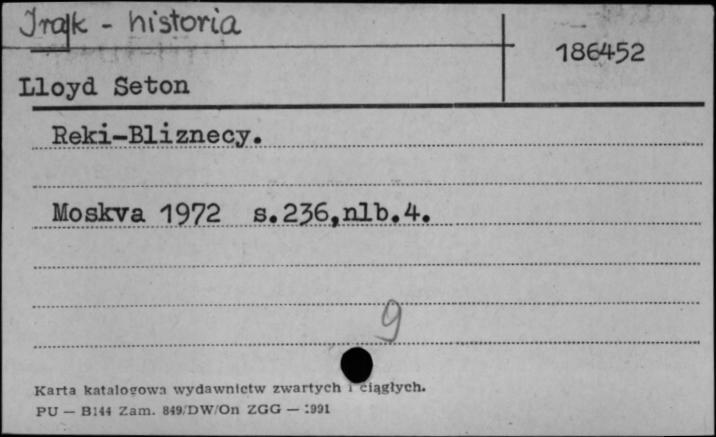 Irak - historia
186452
Lloyd Seton
Reki-Bliznecy.
Moskva 1972 s.236,nlb.4.
9
Karta katalogowa wydawnictw zwartych i ciągłych.
PU — B144 Zam. 849/DW/On ZGG — 1991